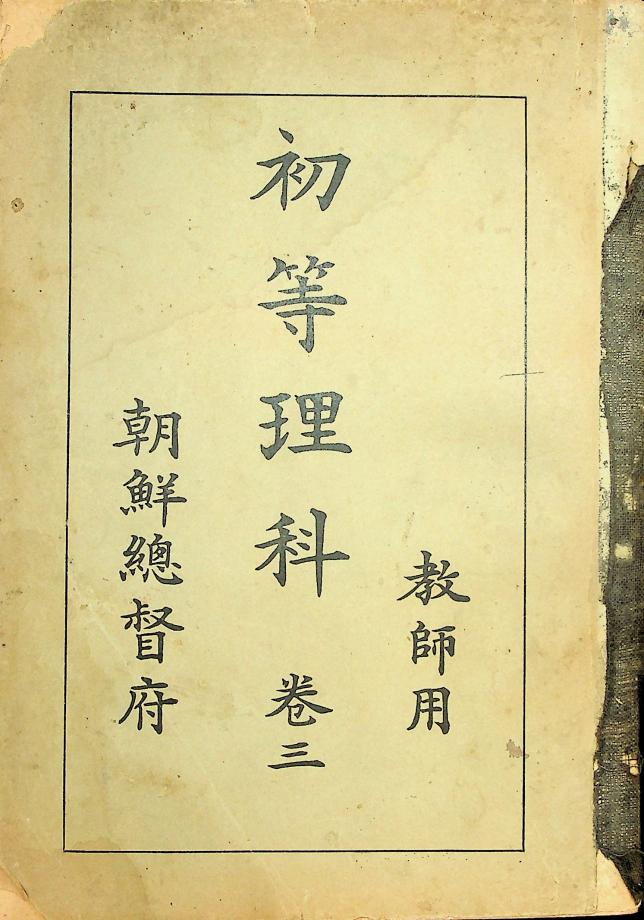 教師用
初等理科 卷三
朝鮮總督府